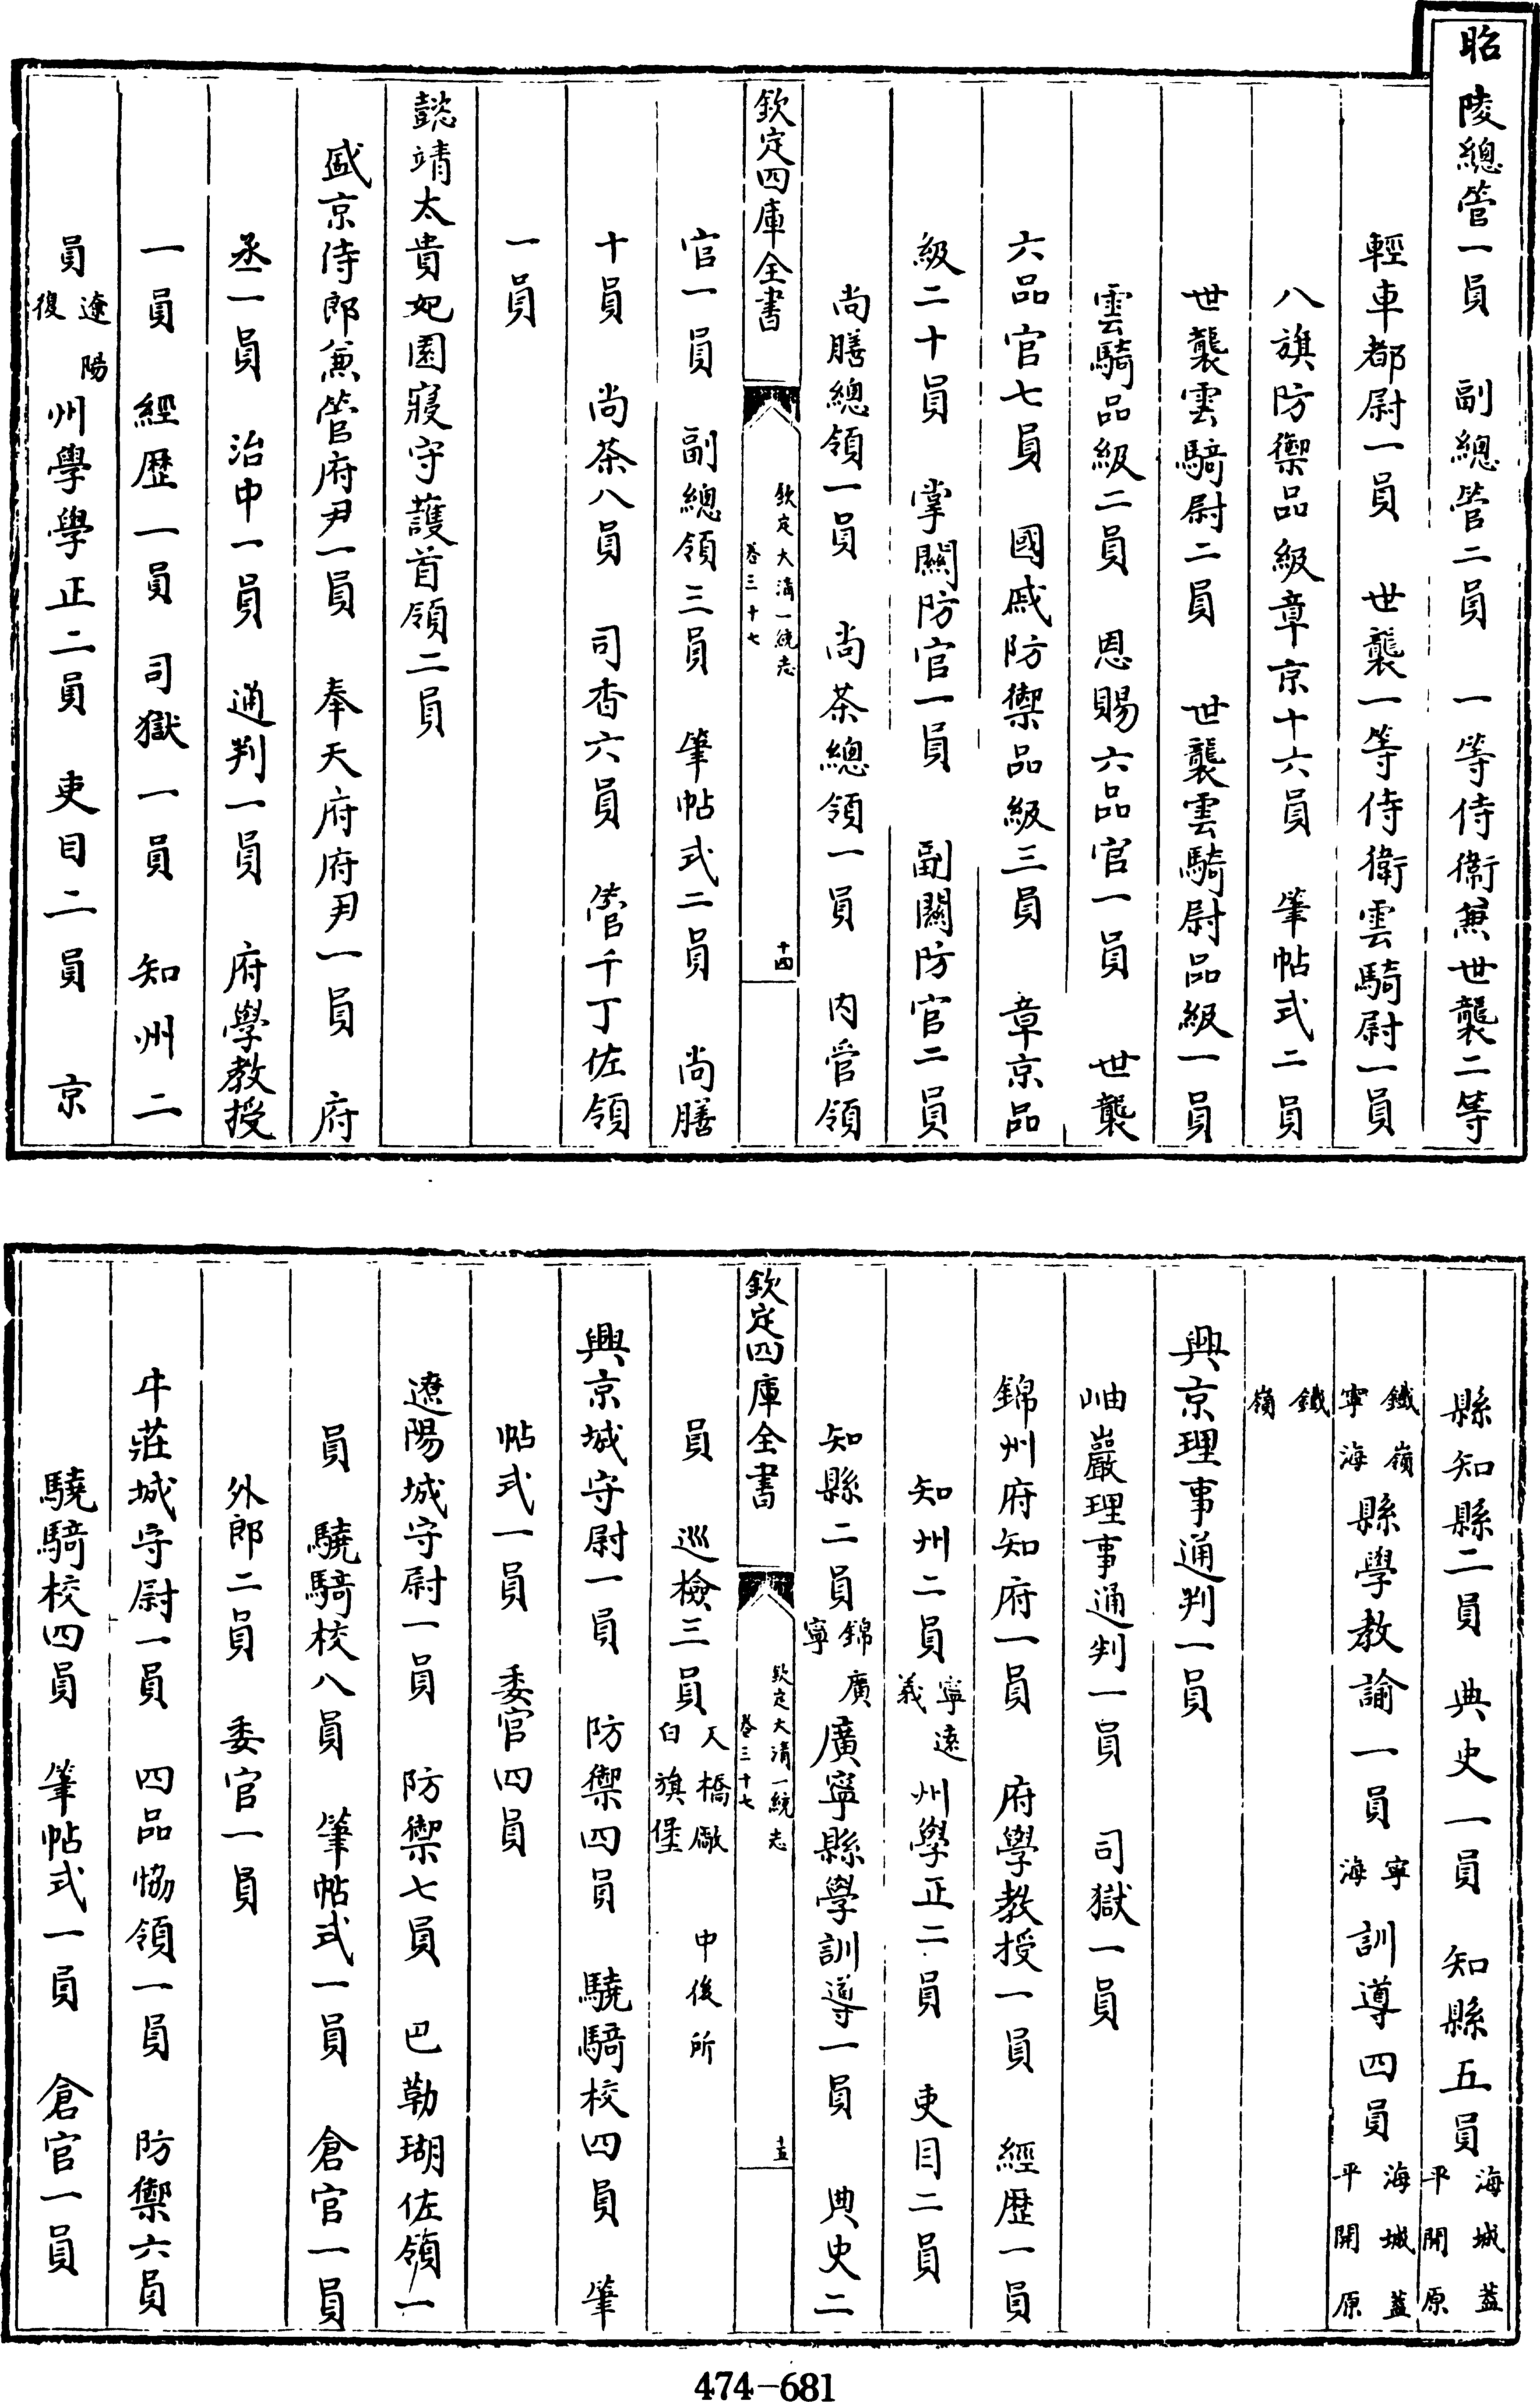 昭陵總管一員　副總管二員　一等侍衞兼世襲二等
輕車都尉一員　世襲一等侍衛雲騎尉一員
八旗防禦品級章京十六員　筆帖式二員
世襲雲騎尉二員　世襲雲騎尉品級一員
雲騎品級二員　恩賜六品官一員　世襲
六品官七員　國戚防禦品級三員　章京品
級二十員　掌關防官一員　副關防官二員
尚膳總領一員　尚茶總領一員　內管領
欽定四庫全書
欽定大清一統志
卷三十七
十四
官一員　副總領三員　筆帖式二員　尚膳
十員　尚茶八員　司香六員　管千丁佐領
一員
懿靖太貴妃園寢守護首領二員
盛京侍郎兼管府尹一員　奉天府府尹一員　府
丞一員　治中一員　通判一員　府學教授
一員　經歷一員　司獄一員　知州二
員遼陽復州學學正二員　吏目二員　京
縣知縣二員　典史一員　知縣五員海城蓋平開原
鐵嶺寧海縣學教諭一員寧海訓導四員海城蓋平開原
鐵嶺
興京理事通判一員
岫巖理事通判一員　司獄一員
錦州府知府一員　府學教授一員　經歷一員
知州二員寧遠義州學正二員　吏目二員
知縣二員錦廣寧廣寧縣學訓導一員　典史二
欽定四庫全書
欽定大清一統志
卷三十七
十五
員　巡檢三員天橋廠　中後所白旗堡
興京城守尉一員　防禦四員　驍騎校四員　筆
帖式一員　委官四員
遼陽城守尉一員　防禦七員　巴勒瑚佐領一
員　驍騎校八員　筆帖式一員　倉官一員
外郎二員　委官一員
牛莊城守尉一員　四品協領一員　防禦六員
驍騎校四員　筆帖式一員　倉官一員
474-681